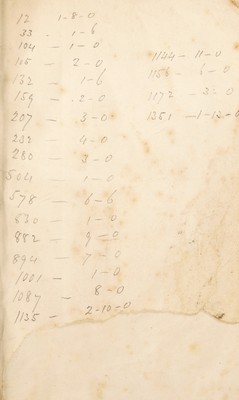 12 1-8-0
33. 1-6
104 - 1-0
115 - 2-0
132 - 1-6
159 - 2-0
207 - 3-0
232 - 4-0
280 - 3-0
504 - 1-0
578 - 6-6
830 - 1-0
882 - 9-0
894 - 7-0
1001 - 1-0
1087 - 8-0
1135 - 2-10-0
1144 - 11-0
1156 - 6-0
1172 - 2-0
1351 -1-12-